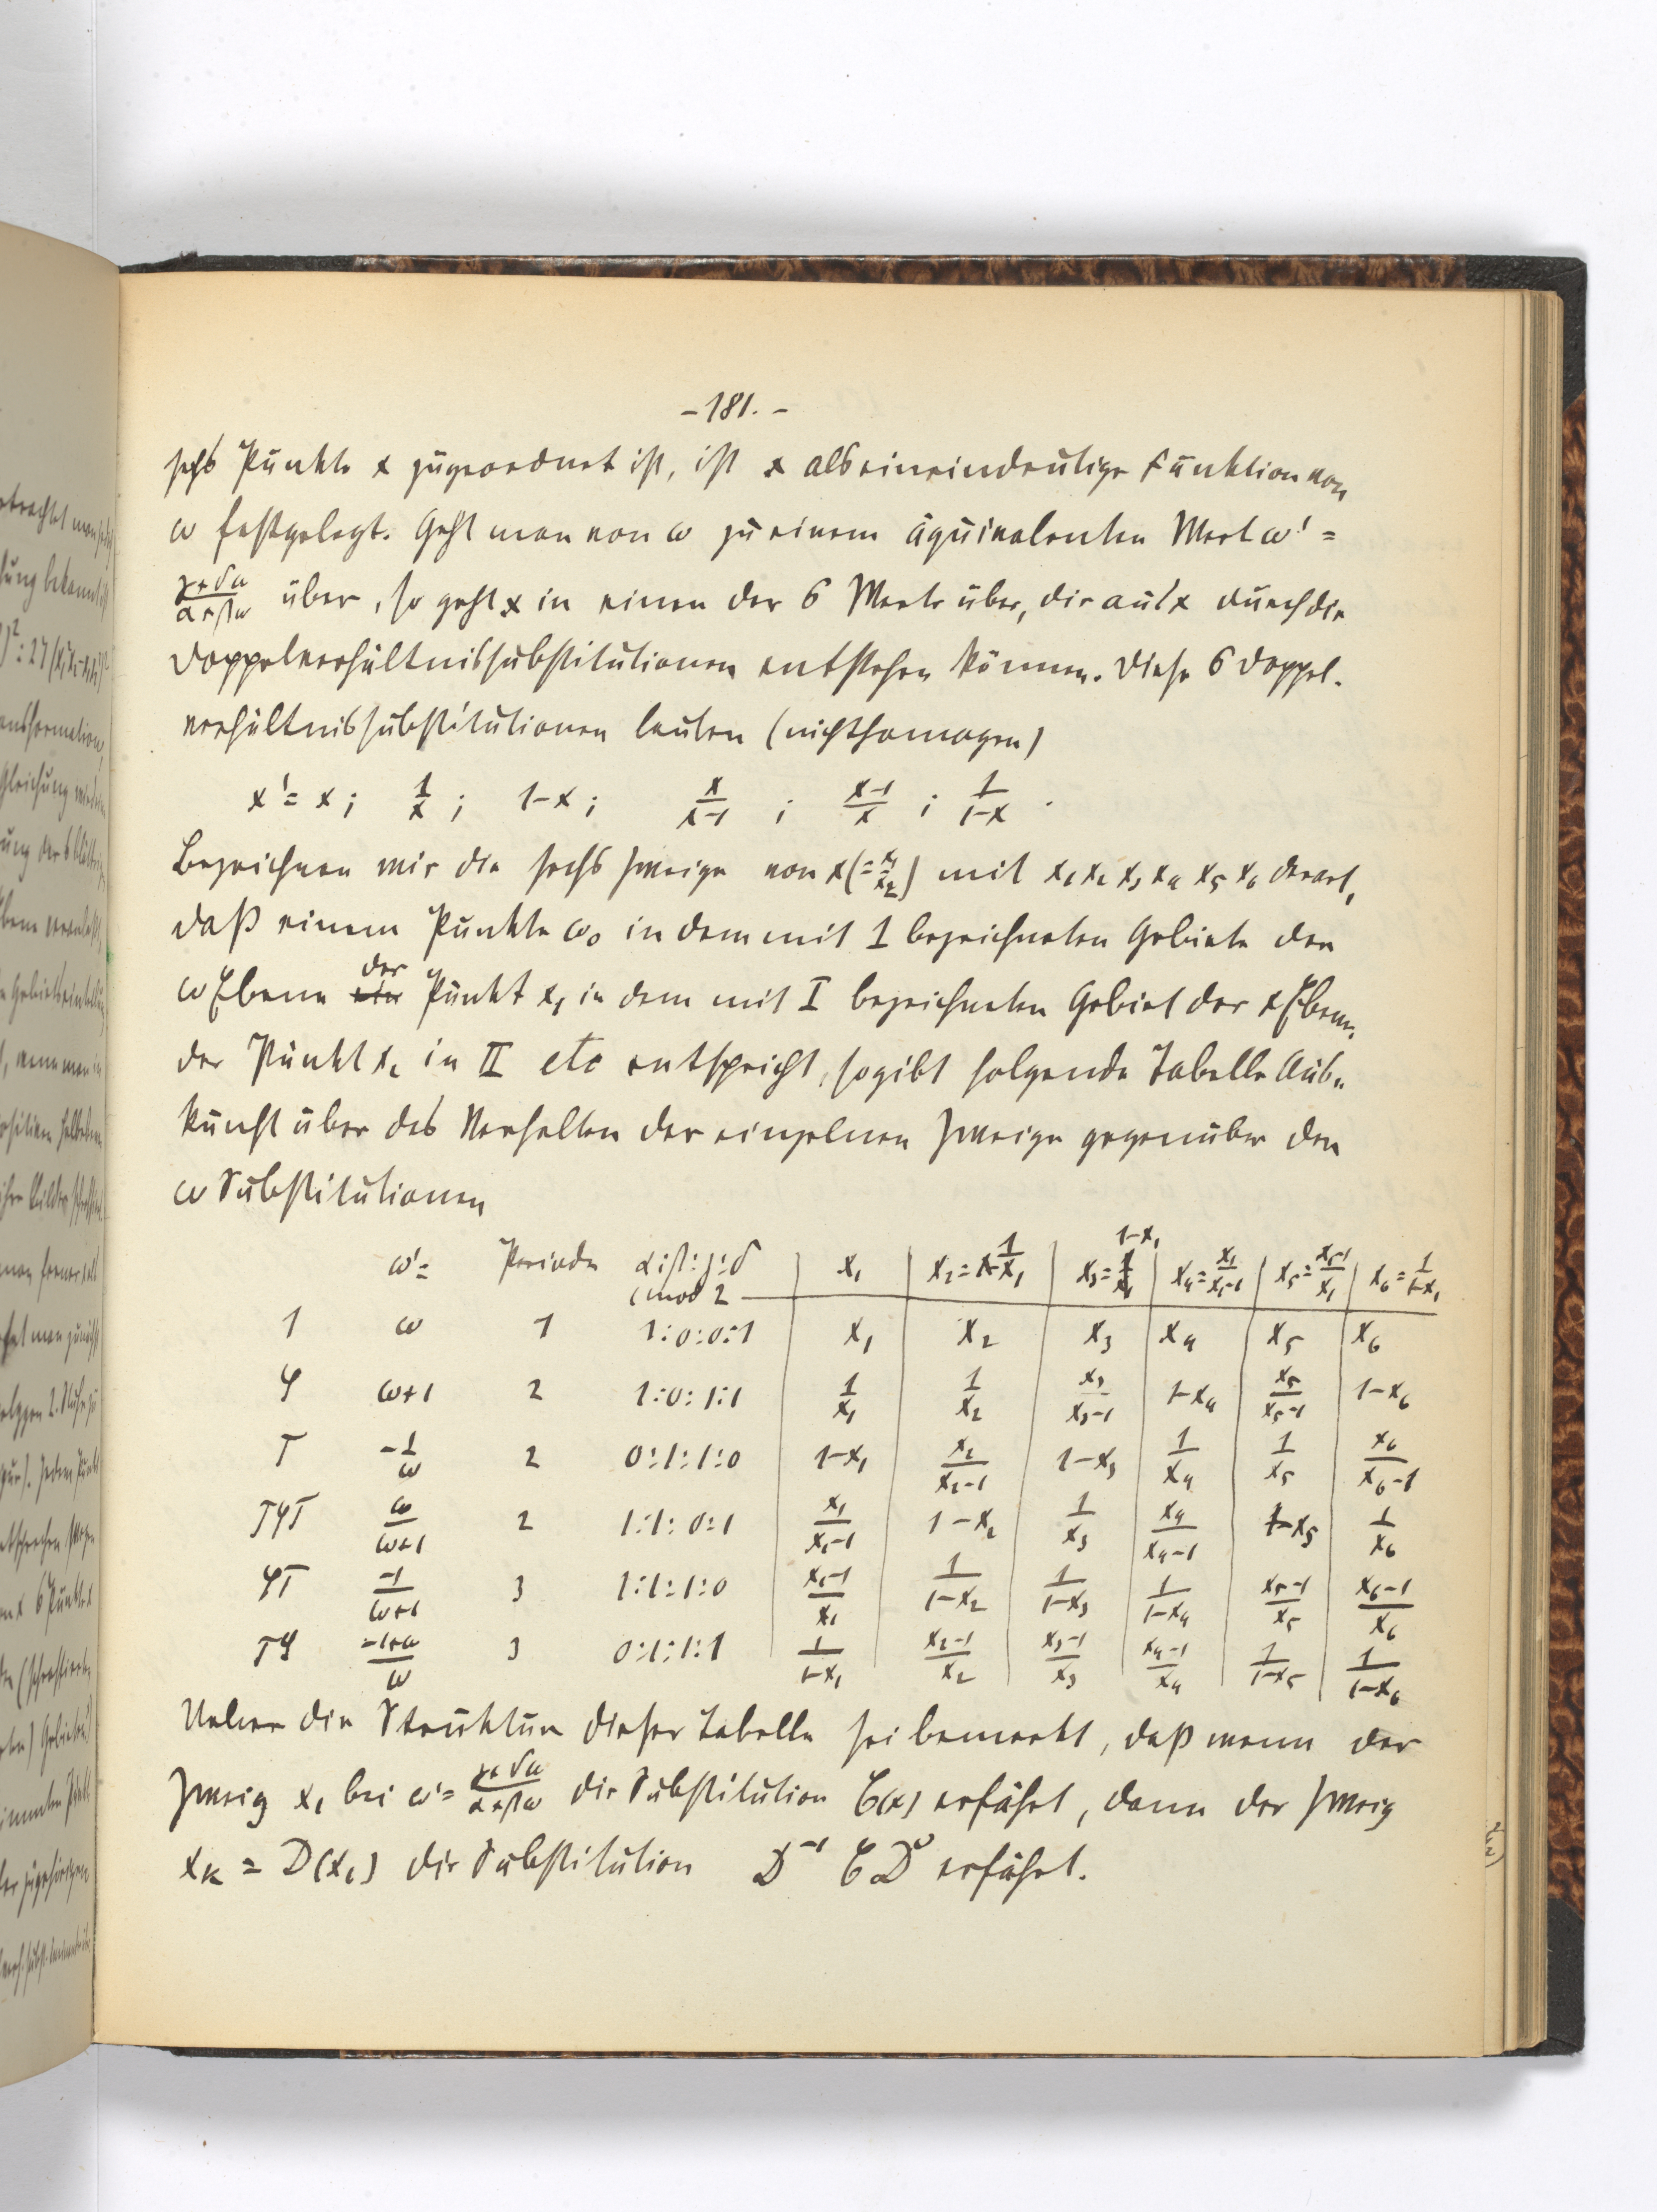 -181.-
sechs Punkte x zugeordnet ist, ist x als eineindeutige Funktion von
ω festgelegt. Geht man von ω zu einem äquivalenten Wert ω' =
(γ+δω)/(α+βω) über, so geht x in einen der 6 Werte über, die aus x durch die
Doppelverhältnissubstitutionen entstehen können. Diese 6 Doppel-
verhältnissubstitutionen lauten (nichthomogen)
x' = x ; 1/x ; 1-x ; x/(x-1) ; (x-1)/x ; 1/(1-x) .
Bezeichnen wir die sechs Zweige von x(=x₁/x₂) mit x₁ x₂ x₃ x₄ x₅ x₆ derart,
daß einem Punkte ω₀ in dem mit 1 bezeichneten Gebiete der
ω Ebene der Punkt x₁ in dem mit I bezeichneten Gebiet der x Ebene,
der Punkt x₂ in II etc entspricht, so gibt folgende Tabelle Aus-
kunft über das Verhalten der einzelnen Zweige gegenüber den
ω Substitutionen
ω' = Periode α:β:γ:δ (mod 2 | x₁ | x₂=1/x₁ | x₃=1-x₁ | x₄=x₁/(x₁-1) | x₅=(x₁-1)/x₁ | x₆=1/(1-x₁)
1 ω 1 1:0:0:1 | x₁ | x₂ | x₃ | x₄ | x₅ | x₆
φ ω+1 2 1:0:1:1 | 1/x₁ | 1/x₂ | x₃/(x₃-1) | 1-x₄ | x₅/(x₅-1) | 1-x₆
T -1/ω 2 0:1:1:0 | 1-x₁ | x₂/(x₂-1) | 1-x₃ | 1/x₄ | 1/x₅ | x₆/(x₆-1)
TφT ω/(ω+1) 2 1:1:0:1 | x₁/(x₁-1) | 1-x₂ | 1/x₃ | x₄/(x₄-1) | 1-x₅ | 1/x₆
φT -1/(ω+1) 3 1:1:1:0 | (x₁-1)/x₁ | 1/(1-x₂) | 1/(1-x₃) | 1/(1-x₄) | (x₅-1)/x₅ | (x₆-1)/x₆
Tφ (-1+ω)/ω 3 0:1:1:1 | 1/(1-x₁) | (x₂-1)/x₂ | (x₃-1)/x₃ | (x₄-1)/x₄ | 1/(1-x₅) | 1/(1-x₆)
Ueber die Struktur dieser Tabelle sei bemerkt, daß wenn der
Zweig x₁ bei ω'=(γ+δω)/(α+βω) die Substitution C(x) erfährt, dann der Zweig
xₖ = D(x₁) die Substitution D⁻¹ C D erfährt.